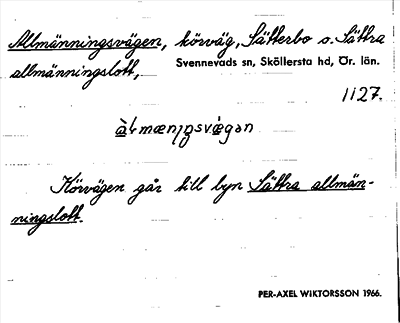 Allmänningsvägen, körväg, Sätterbo o. Sättra
allmänningslott, Svennevads sn, Sköllersta hd, Ör. län.
1127.
Körvägen går till byn Sättra allmän-
ningslott.
PER-AXEL WIKTORSSON 1966.